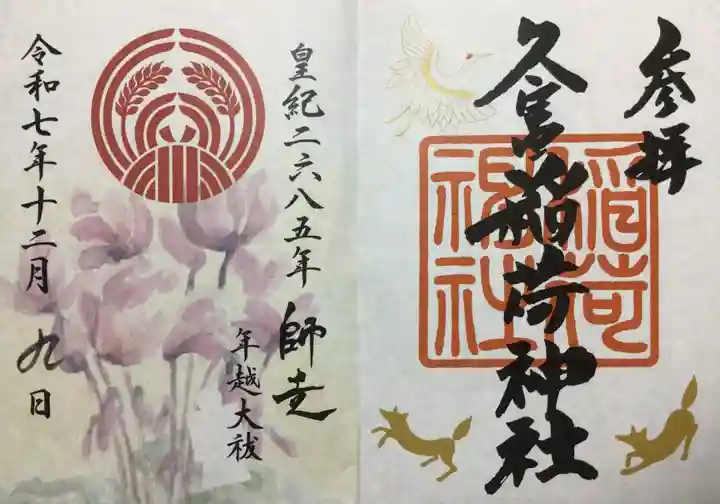 参拝
久富稲荷神社
稲荷
神社
皇紀二六八五年 師走
年越大祓
令和七年十二月 九日